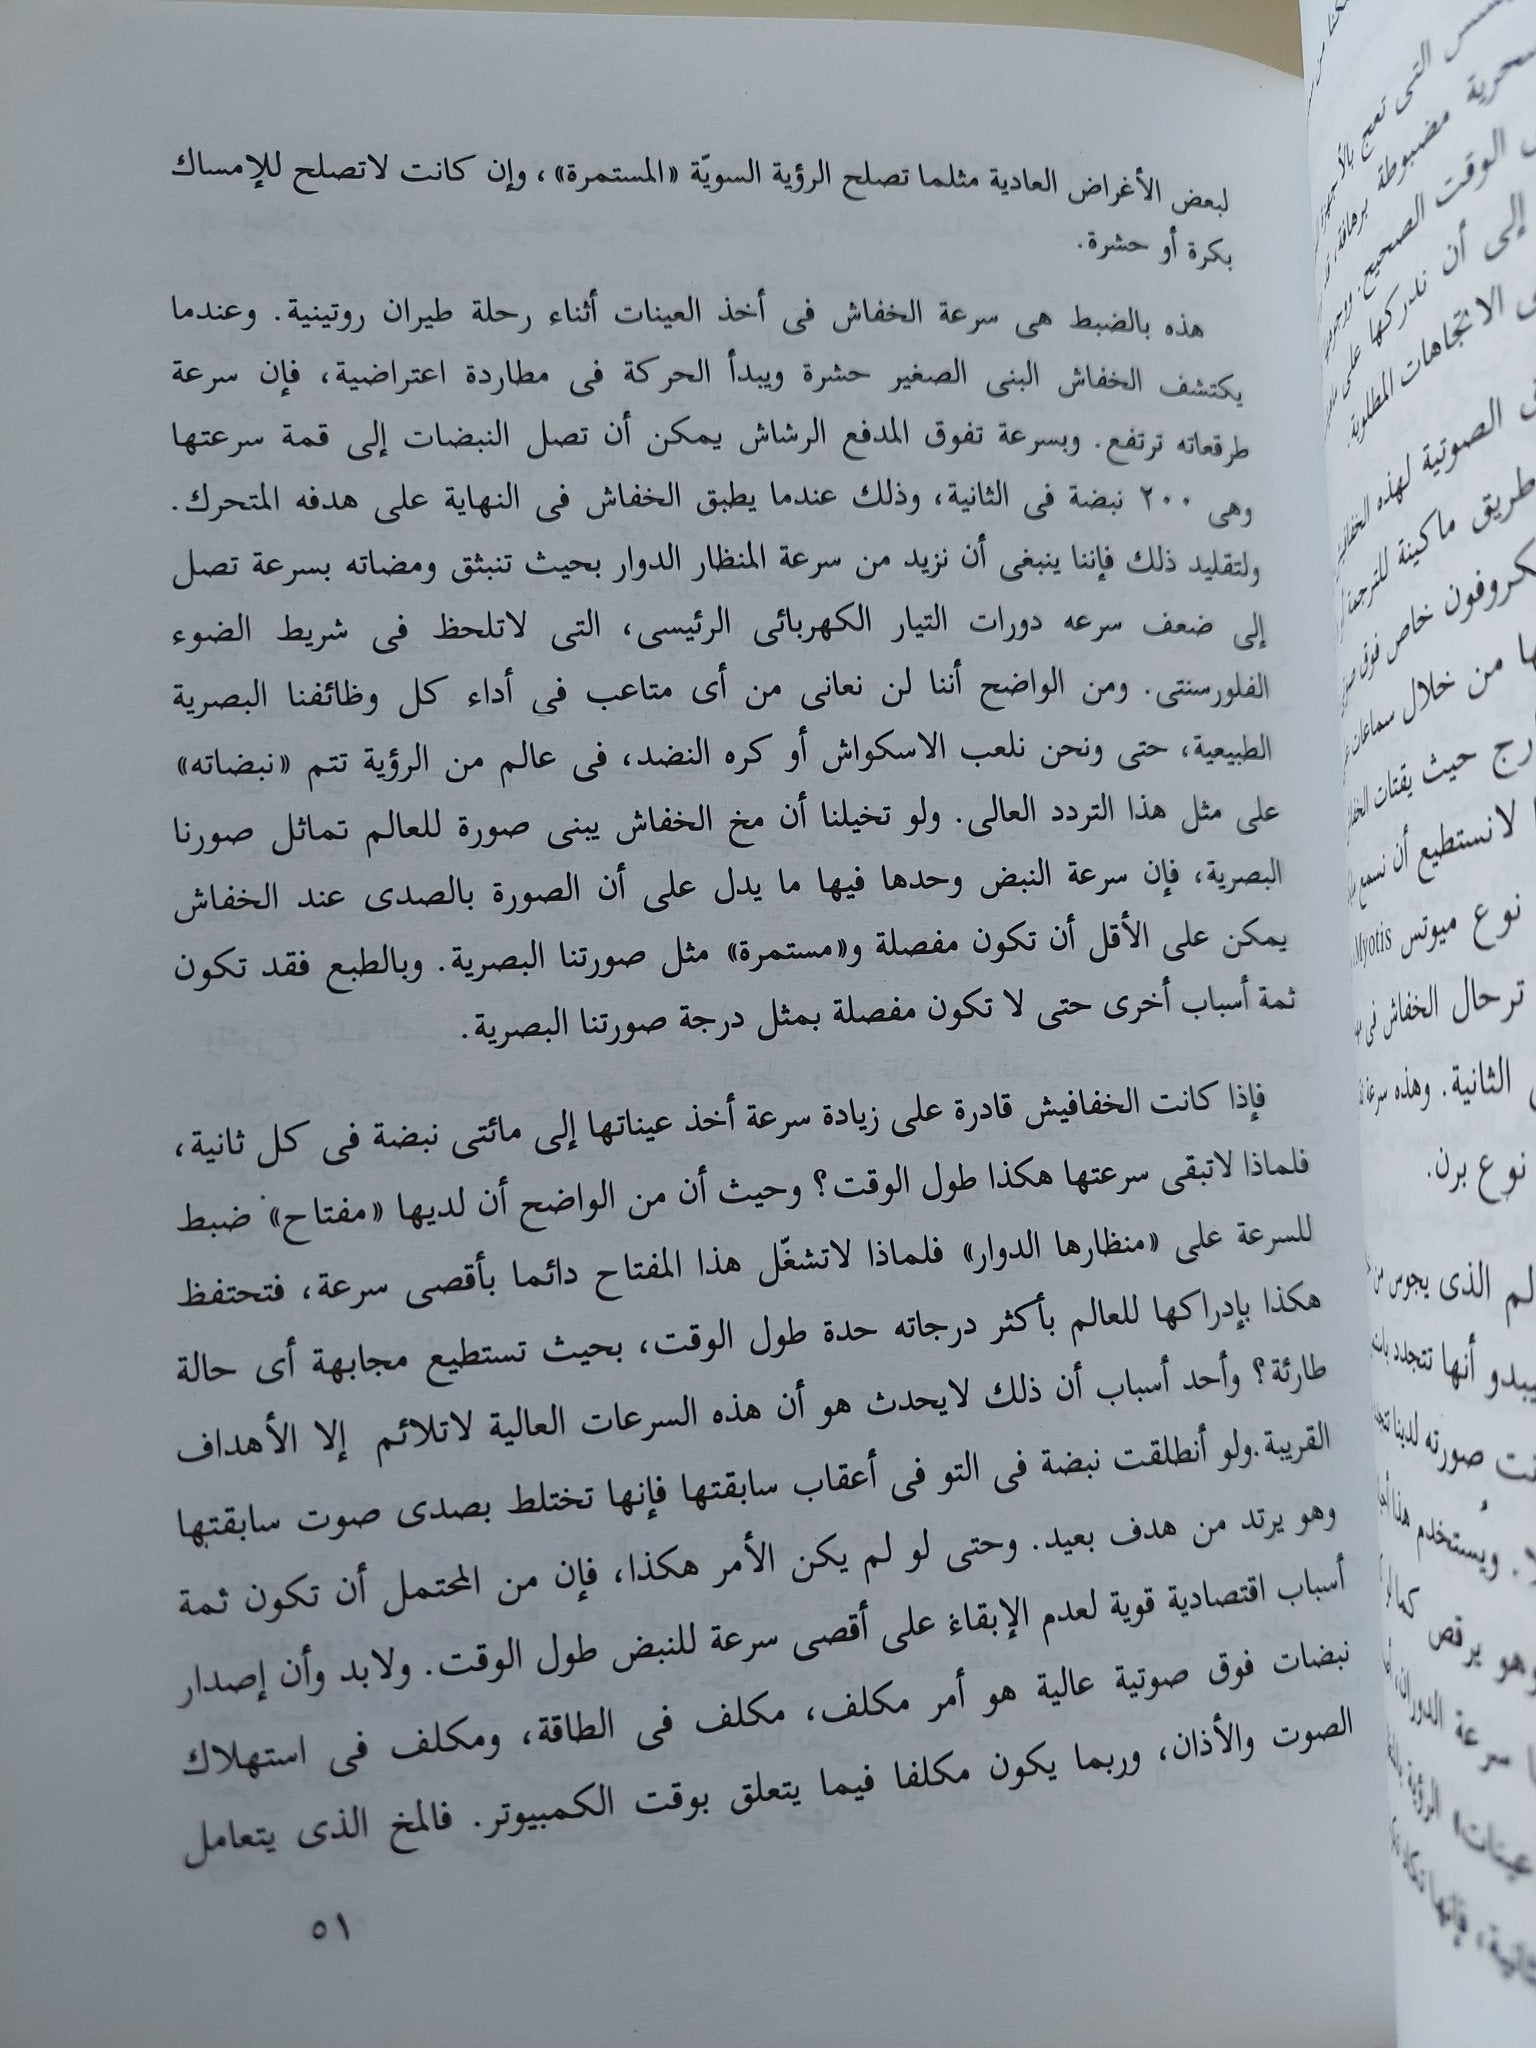 لبعض الأغراض العادية مثلما تصلح الرؤية السويّة «المستمرة»، وإن كانت لاتصلح للإمساك
بكرة أو حشرة.
هذه بالضبط هى سرعة الخفاش فى أخذ العينات أثناء رحلة طيران روتينية. وعندما
يكتشف الخفاش البنى الصغير حشرة ويبدأ الحركة فى مطاردة اعتراضية، فإن سرعة
طرقعاته ترتفع. وبسرعة تفوق المدفع الرشاش يمكن أن تصل النبضات إلى قمة سرعتها
وهى ٢٠٠ نبضة فى الثانية، وذلك عندما يطبق الخفاش فى النهاية على هدفه المتحرك.
ولتقليد ذلك فإننا ينبغى أن نزيد من سرعة المنظار الدوار بحيث تنبثق ومضاته بسرعة تصل
إلى ضعف سرعه دورات التيار الكهربائى الرئيسى، التى لاتلحظ فى شريط الضوء
الفلورسنتى. ومن الواضح أننا لن نعانى من أى متاعب فى أداء كل وظائفنا البصرية
الطبيعية، حتى ونحن نلعب الاسكواش أو كره النضد، فى عالم من الرؤية تتم «نبضاته»
على مثل هذا التردد العالى. ولو تخيلنا أن مخ الخفاش يبنى صورة للعالم تماثل صورنا
البصرية، فإن سرعة النبض وحدها فيها ما يدل على أن الصورة بالصدى عند الخفاش
يمكن على الأقل أن تكون مفصلة و«مستمرة» مثل صورتنا البصرية. وبالطبع فقد تكون
ثمة أسباب أخرى حتى لا تكون مفصلة بمثل درجة صورتنا البصرية.
فإذا كانت الخفافيش قادرة على زيادة سرعة أخذ عيناتها إلى مائتى نبضة فى كل ثانية،
فلماذا لاتبقى سرعتها هكذا طول الوقت؟ وحيث أن من الواضح أن لديها «مفتاح» ضبط
للسرعة على «منظارها الدوار» فلماذا لاتشغّل هذا المفتاح دائما بأقصى سرعة، فتحتفظ
هكذا بإدراكها للعالم بأكثر درجاته حدة طول الوقت، بحيث تستطيع مجابهة أى حالة
طارئة؟ وأحد أسباب أن ذلك لايحدث هو أن هذه السرعات العالية لاتلائم إلا الأهداف
القريبة.ولو أنطلقت نبضة فى التو فى أعقاب سابقتها فإنها تختلط بصدى صوت سابقتها
وهو يرتد من هدف بعيد. وحتى لو لم يكن الأمر هكذا، فإن من المحتمل أن تكون ثمة
أسباب اقتصادية قوية لعدم الإبقاء على أقصى سرعة للنبض طول الوقت. ولابد وأن إصدار
نبضات فوق صوتية عالية هو أمر مكلف، مكلف فى الطاقة، ومكلف فى استهلاك
الصوت والأذان، وربما يكون مكلفا فيما يتعلق بوقت الكمبيوتر. فالمخ الذى يتعامل
٥١
التى تعج
مضبوطة برهافة
الوقت الصحيح.
إلى أن ندركها على
الاتجاهات المطلوبة.
الصوتية لهذه
طريق ماكينة للترجمة
خاص فوق
من خلال سماعات
حيث يقتات
لانستطيع أن نسمع
نوع ميوتس Myotis
ترحال الخفاش فى
الثانية. وهذه سرعة
نوع برن.
الذى يجوس من
أنها تتجدد
صورته لدينا
ويستخدم هذا
وهو يرقص
سرعة الدوران،
الرؤية
فإنها تكاد